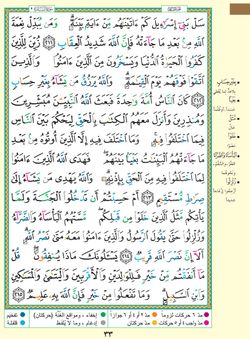 سَلْ بَنِىٓ إِسْرَٰٓءِيلَ كَمْ ءَاتَيْنَٰهُم مِّنْ ءَايَةٍۭ بَيِّنَةٍۗ وَمَن يُبَدِّلْ نِعْمَةَ
ٱللَّهِ مِنۢ بَعْدِ مَا جَآءَتْهُ فَإِنَّ ٱللَّهَ شَدِيدُ ٱلْعِقَابِ ٢١١ زُيِّنَ لِلَّذِينَ
كَفَرُوا۟ ٱلْحَيَوٰةُ ٱلدُّنْيَا وَيَسْخَرُونَ مِنَ ٱلَّذِينَ ءَامَنُوا۟ۘ وَٱلَّذِينَ
ٱتَّقَوْا۟ فَوْقَهُمْ يَوْمَ ٱلْقِيَٰمَةِۗ وَٱللَّهُ يَرْزُقُ مَن يَشَآءُ بِغَيْرِ حِسَابٍ
٢١٢ كَانَ ٱلنَّاسُ أُمَّةً وَٰحِدَةً فَبَعَثَ ٱللَّهُ ٱلنَّبِيِّـۧنَ مُبَشِّرِينَ
وَمُنذِرِينَ وَأَنزَلَ مَعَهُمُ ٱلْكِتَٰبَ بِٱلْحَقِّ لِيَحْكُمَ بَيْنَ ٱلنَّاسِ
فِيمَا ٱخْتَلَفُوا۟ فِيهِۚ وَمَا ٱخْتَلَفَ فِيهِ إِلَّا ٱلَّذِينَ أُوتُوهُ مِنۢ
بَعْدِ مَا جَآءَتْهُمُ ٱلْبَيِّنَٰتُ بَغْيًۢا بَيْنَهُمْۖ فَهَدَى ٱللَّهُ ٱلَّذِينَ ءَامَنُوا۟
لِمَا ٱخْتَلَفُوا۟ فِيهِ مِنَ ٱلْحَقِّ بِإِذْنِهِۦۗ وَٱللَّهُ يَهْدِى مَن يَشَآءُ إِلَىٰ
صِرَٰطٍ مُّسْتَقِيمٍ ٢١٣ أَمْ حَسِبْتُمْ أَن تَدْخُلُوا۟ ٱلْجَنَّةَ وَلَمَّا
يَأْتِكُم مَّثَلُ ٱلَّذِينَ خَلَوْا۟ مِن قَبْلِكُمۖ مَّسَّتْهُمُ ٱلْبَأْسَآءُ وَٱلضَّرَّآءُ
وَزُلْزِلُوا۟ حَتَّىٰ يَقُولَ ٱلرَّسُولُ وَٱلَّذِينَ ءَامَنُوا۟ مَعَهُۥ مَتَىٰ نَصْرُ ٱللَّهِۗ
أَلَآ إِنَّ نَصْرَ ٱللَّهِ قَرِيبٌ ٢١٤ يَسْـَٔلُونَكَ مَاذَا يُنفِقُونَۖ قُلْ
مَآ أَنفَقْتُم مِّنْ خَيْرٍ فَلِلْوَٰلِدَيْنِ وَٱلْأَقْرَبِينَ وَٱلْيَتَٰمَىٰ وَٱلْمَسَٰكِينِ
وَٱبْنِ ٱلسَّبِيلِۗ وَمَا تَفْعَلُوا۟ مِنْ خَيْرٍ فَإِنَّ ٱللَّهَ بِهِۦ عَلِيمٌ ٢١٥
٣٣